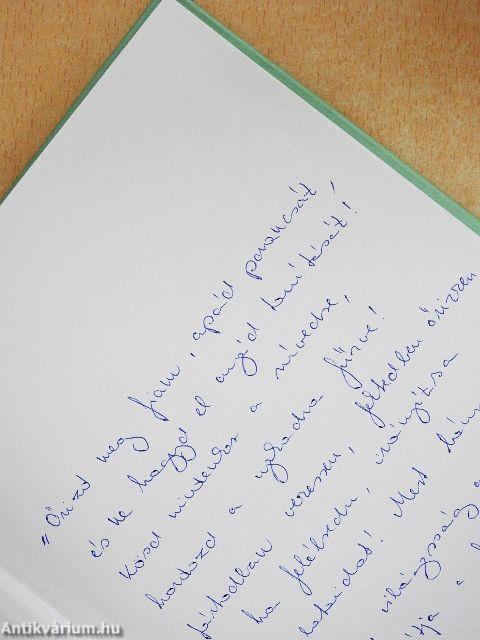 "Őrizd meg fiam, apád parancsát,
és ne hagyd el anyád tanítását!
Kösd mindenkor a szívedre,
hordozd a nyakadra fűzve!
Jártodban vezessen, fektedben őrizzen
ha felébredsz, irányítsa
Mert
világosság a
Antikvárium.hu